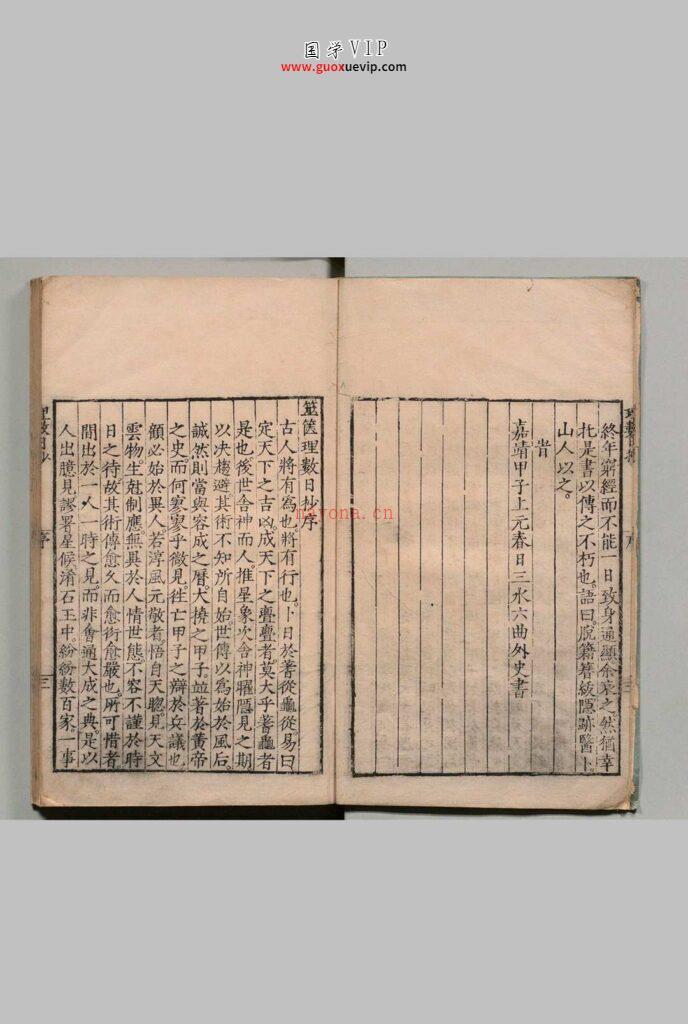 国学VIP
www.guoxuevip.com
終年窮經而不能一日致身通顯余哀之然猶幸
北是書以傳之不朽也語曰脫籍著紱隱跡醫卜
山人以之
旹
嘉靖甲子上元春日三水六曲外史書
nayona.cn
理數日抄
序
三
筮篋理數日抄序
古人將有爲也將有行也卜日於蓍從龜從易曰
定天下之吉凶成天下之亹亹者莫大乎蓍龜者
是也後世舍神而人推星象次舍神曜隱見之期
以决趨避其術不知所自始世傳以爲始於風后
誠然則當與容成之曆大撓之甲子並著於黃帝
之史而何寥寥乎微見往亡甲子之辯於兵議也
顧必始於異人若淳風元敬者悟自天聰見天文
雲物生尅制應無異於人情世態不容不謹於時
日之待故其術傳愈久而愈術愈嚴也所可惜者
間出於一人一時之見而非會通大成之典是以
人出臆見謬署星候淆石玉中紛紛數百家一事
理數日抄
序
三